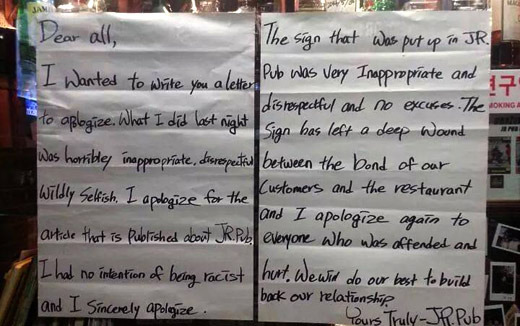 Dear all,
I wanted to write you a letter
to apologize. What I did last night
was horribley inappropriate, disrespectful
Wildly Selfish. I apologize for the
article that is Published about JR.Pub.
I had no intention of being racist
and I Sincerely apologize.
The sign that was put up in JR.
Pub was very Inappropriate and
disrespectful and no excuses. The
Sign has left a deep wound
between the bond of our
Customers and the restaurant
and I apologize again to
everyone who was offended and
hurt. We will do our best to build
back our relationship.
Yours Truly-JR.Pub
연구